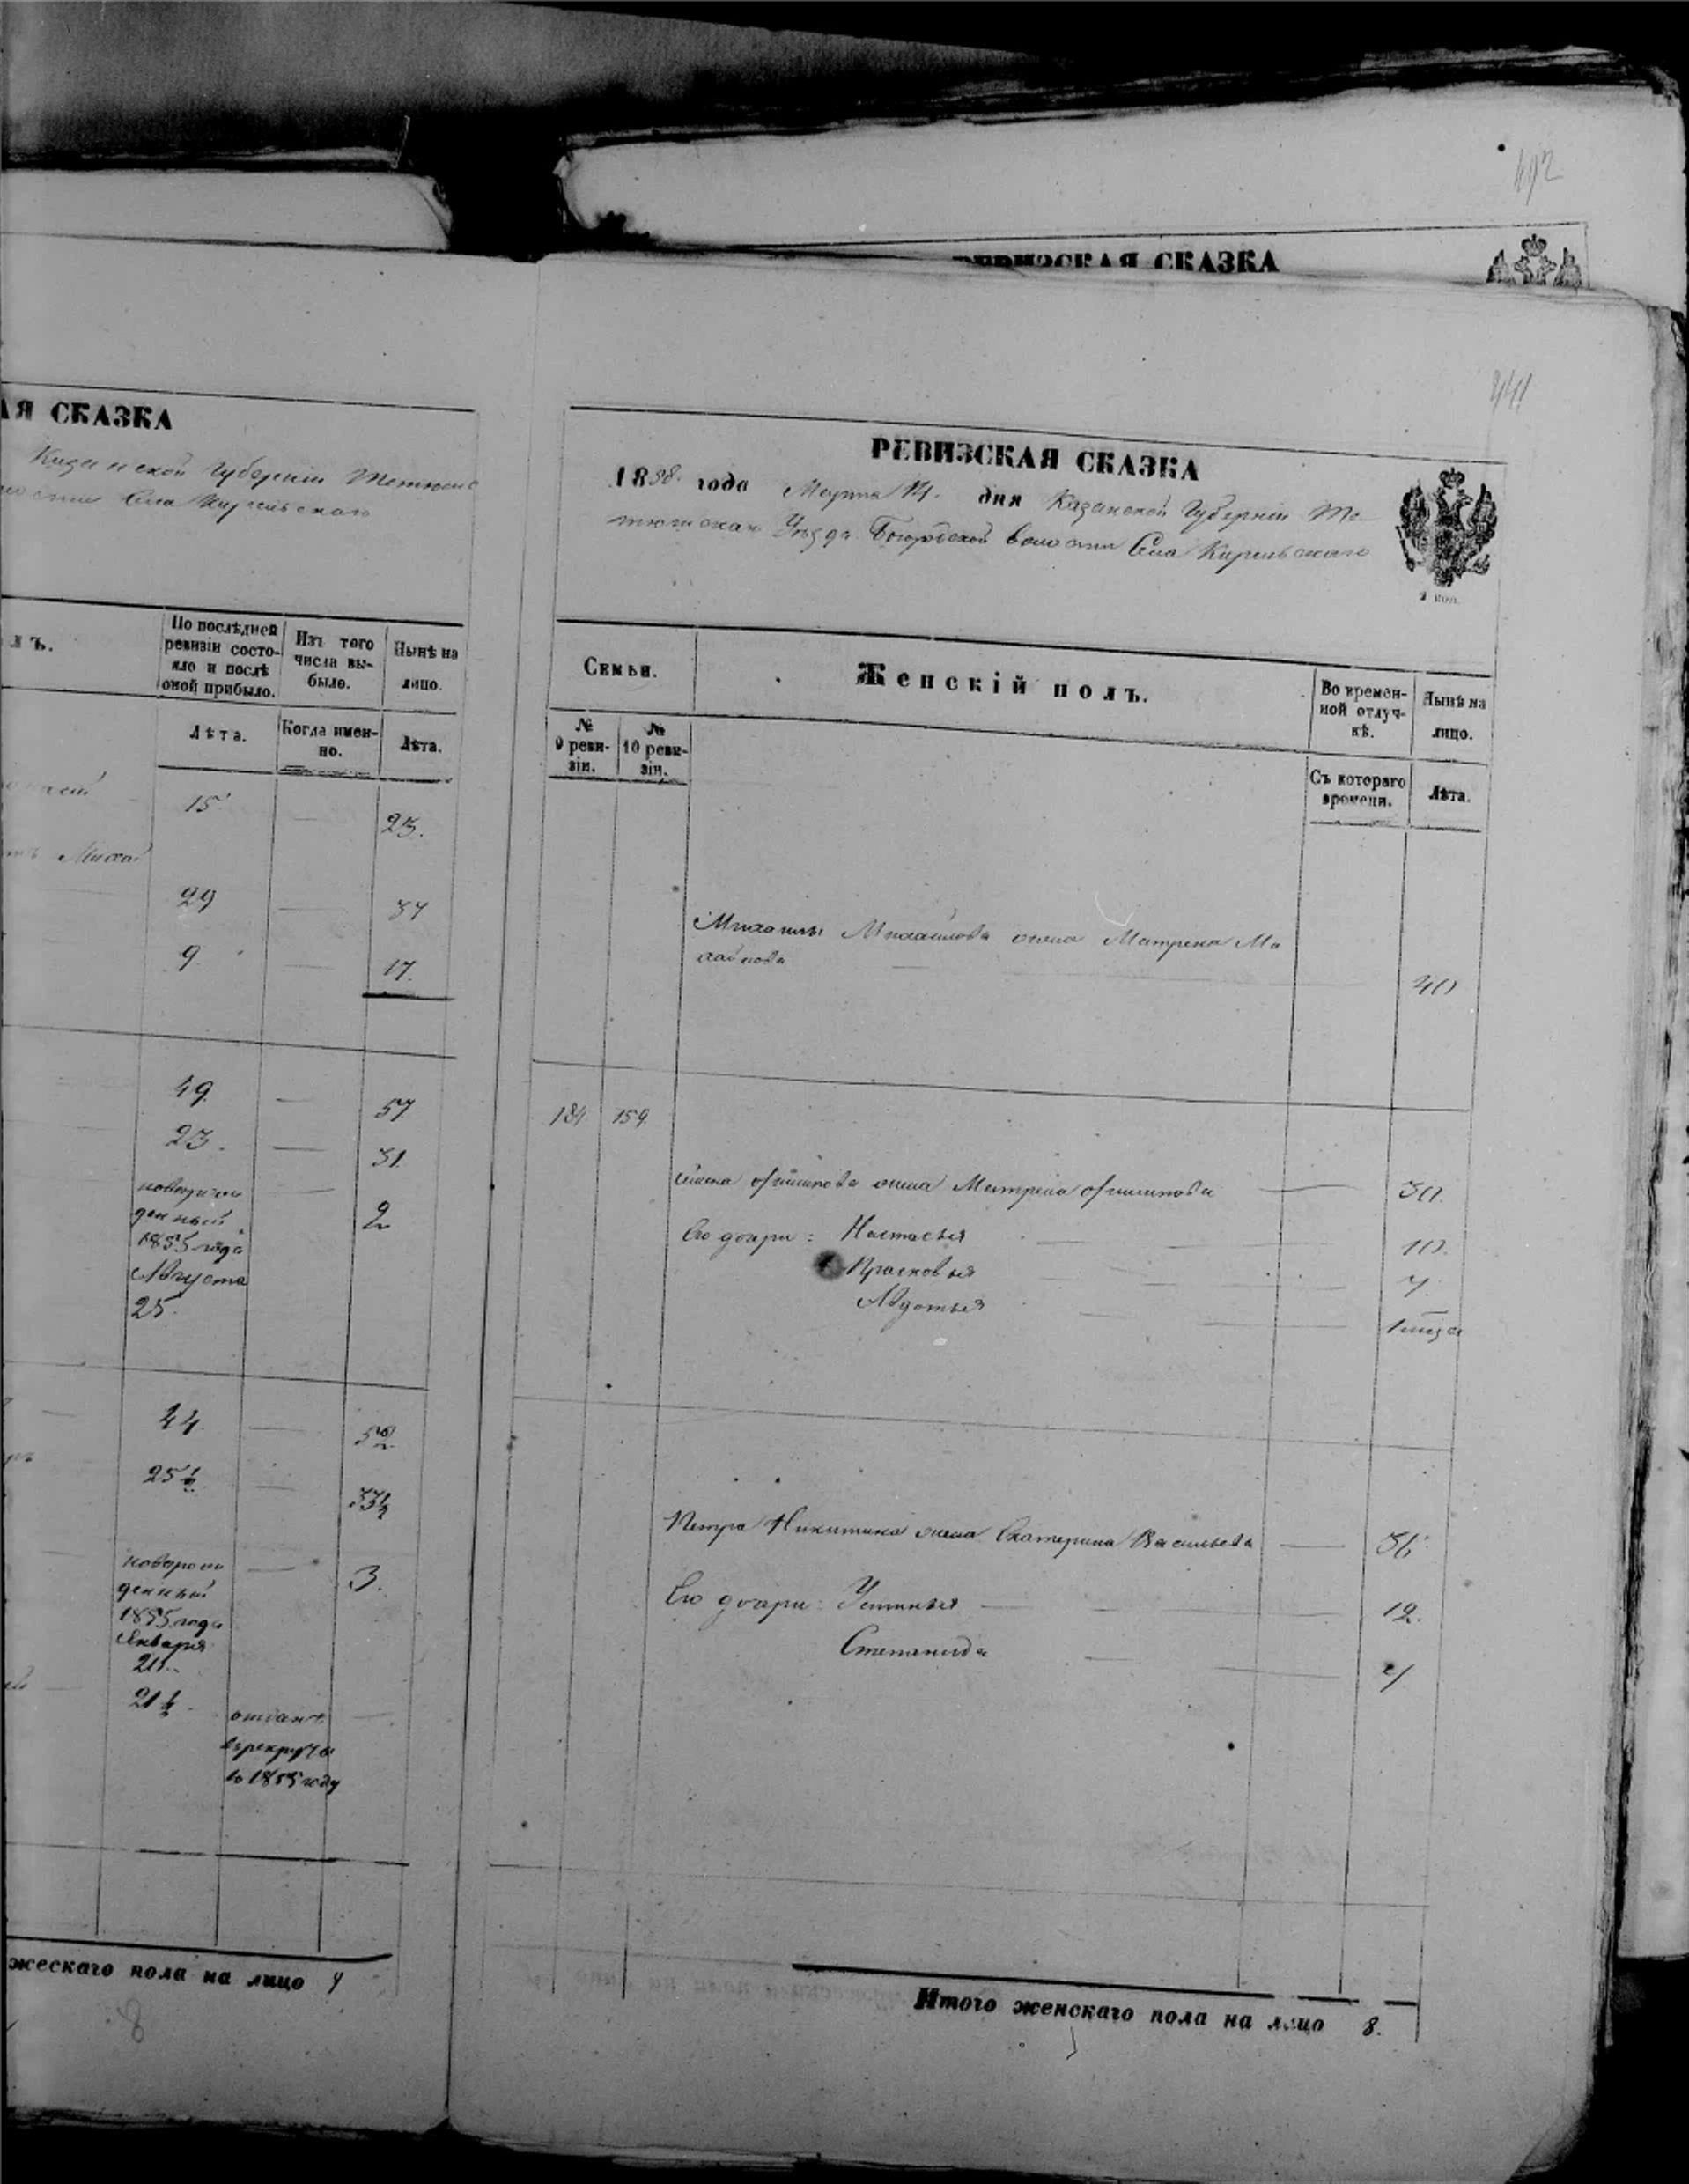 492
РЕВИЗСКАЯ СКАЗКА
АЯ СКАЗКА
Казанской Губерніи Тетюшс
Села Кирельскаго
лъ.
По послѣдней ревизіи состояло и послѣ оной прибыло.
Изъ того числа выбыло.
Нынѣ на лицо.
Лѣта.
Когда именно.
Лѣта.
15
23.
Михай
29
37
9
17.
49.
57
23.
31.
новорож
денный
1855 года
Августа
25.
2
44.
52
25 1/2
33 1/2
новорож
денный
1855 года
Января
3.
21 1/2
отданъ
в рекруты
въ 1855 году
жескаго пола на лицо 7
8
441
РЕВИЗСКАЯ СКАЗКА
1858 года Марта 14 дня Казанской Губерніи Те
тюшскаго Уѣзда Богородской волости Села Кирельскаго
2 коп.
Семьи.
Женскій полъ.
Во временной отлучкѣ.
Нынѣ на лицо.
№ 9 ревизіи.
№ 10 ревизіи.
Съ котораго времени.
Лѣта.
Михаилы Михайлова жена Матрена Ми
хайлова
40
184 159.
жена Матрена
30.
Его дочери: Настасья 10.
Прасковья 7.
Авдотья
Петра Никитина жена Екатерина Васильева 36
Его дочери: Устинья 12.
Степанида
Итого женскаго пола на лицо 8.